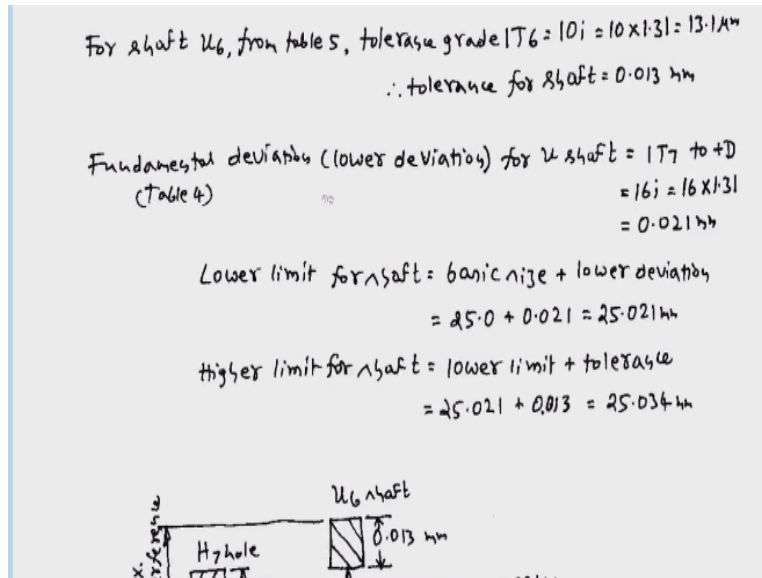 For shaft u6, from table 5, tolerance grade IT6 = 10i = 10×1.31 = 13.1μm
∴ tolerance for shaft = 0.013 mm
Fundamental deviation (lower deviation) for u shaft = IT7 to +D
(Table 4)
= 16i = 16×1.31
= 0.021mm
Lower limit for shaft = basic size + lower deviation
= 25.0 + 0.021 = 25.021mm
Higher limit for shaft = lower limit + tolerance
= 25.021 + 0.013 = 25.034mm
U6 shaft
0.013 mm
H7 hole